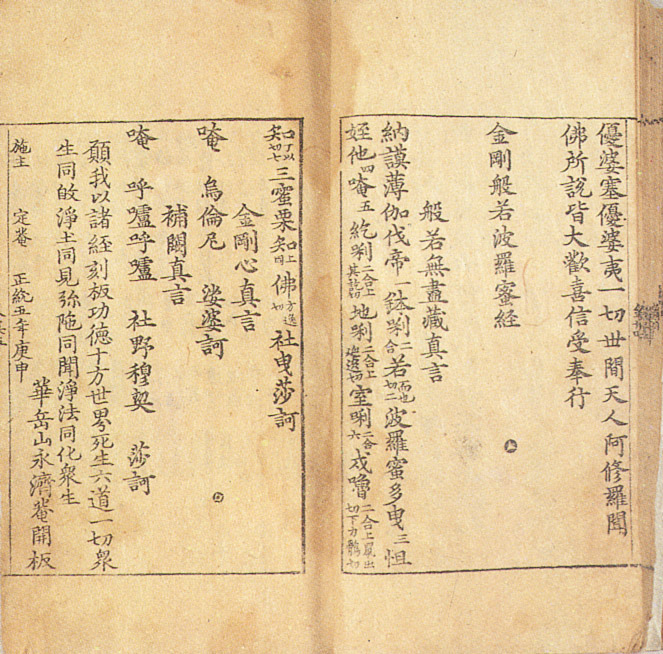 優婆塞優婆夷一切世間天人阿修羅聞
佛所說皆大歡喜信受奉行
金剛般若波羅蜜経
般若無盡藏真言
納謨薄伽伐帝一鉢唎二合若而也切二波羅蜜多曳三怛
姪他四唵五紇唎二合上地唎二合上室唎二合六戍嚕二合上
知丁以切七三蜜栗知上佛社曳莎訶
金剛心真言
唵 烏倫尼 娑婆訶
補闕真言
唵 呼嚧呼嚧 社野穆契 莎訶
願我以諸経刻板功德十方世界死生六道一切衆
生同啟淨土同見弥陁同聞淨法同化衆生
華岳山永濟菴開板
施主 定菴 正統五年庚申